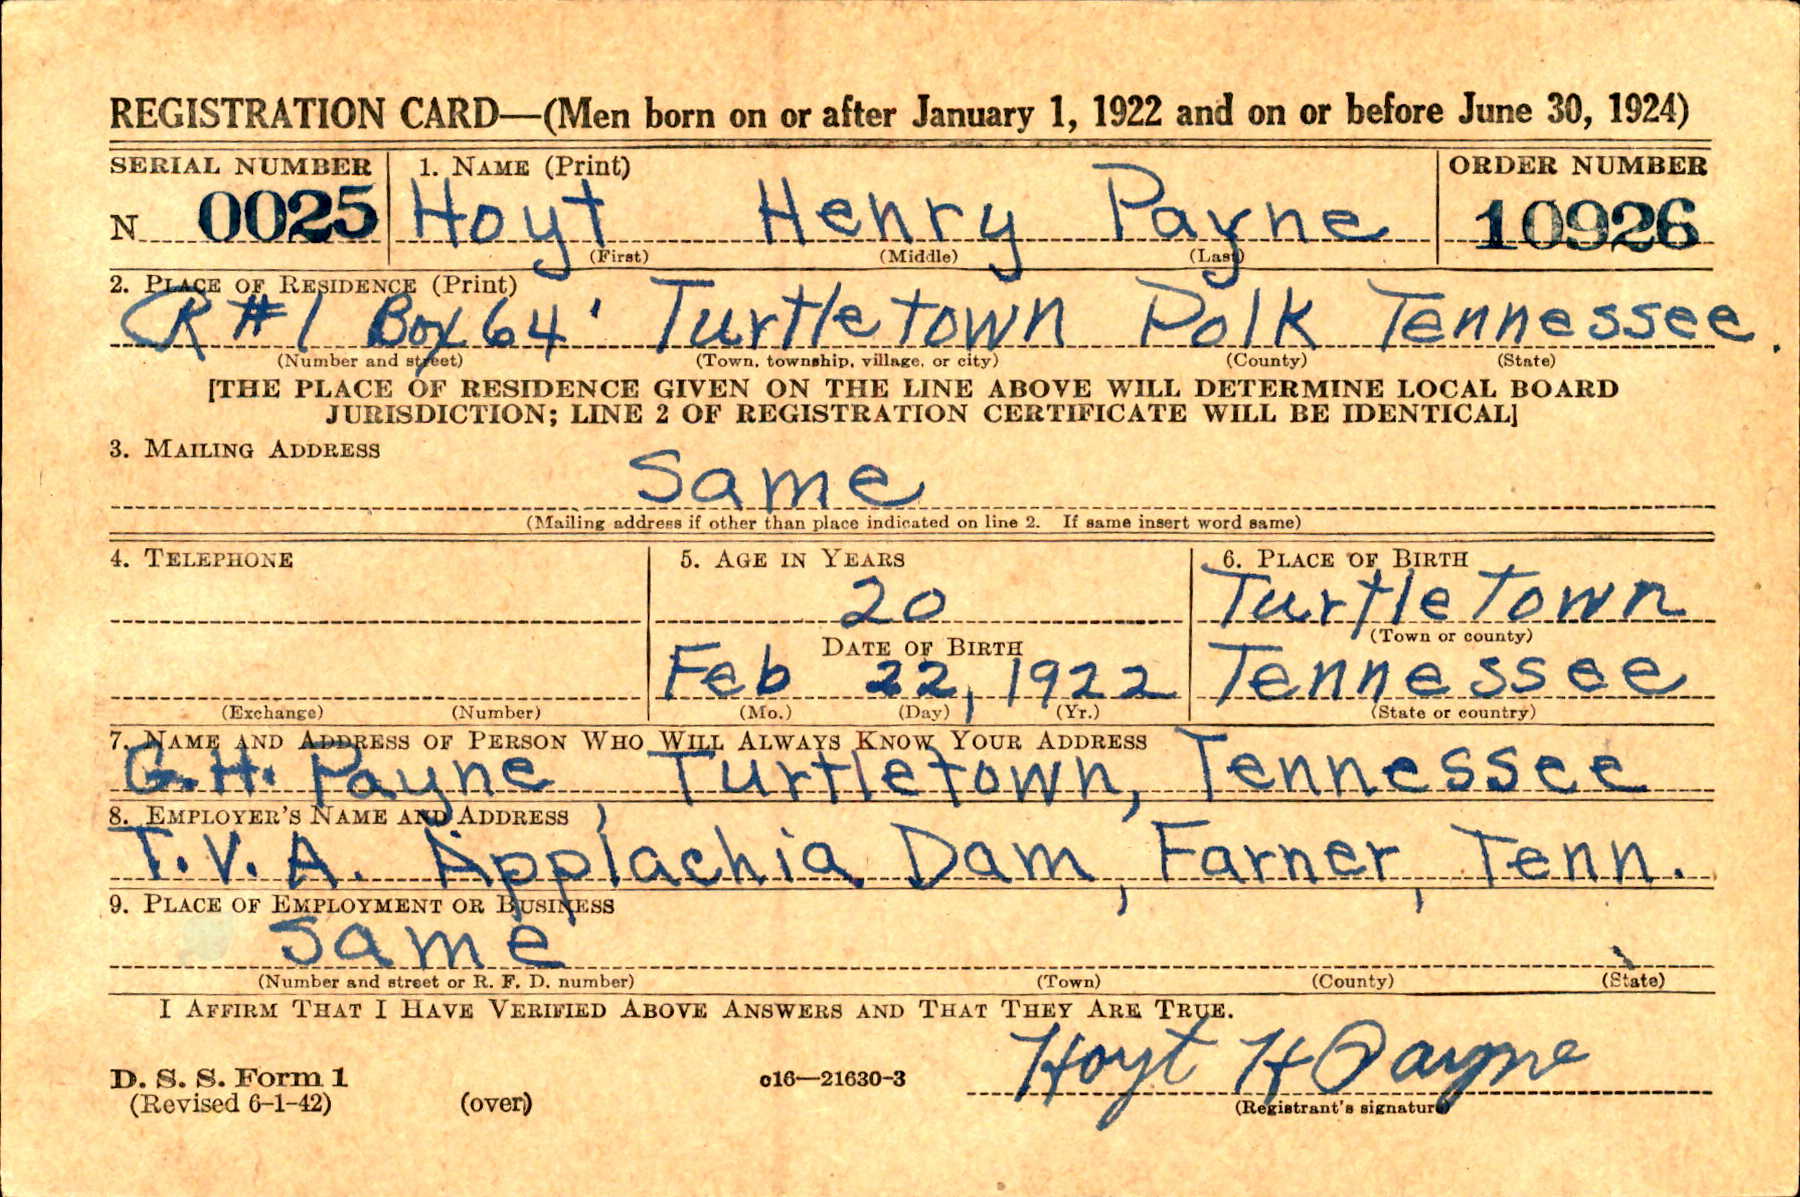 REGISTRATION CARD—(Men born on or after January 1, 1922 and on or before June 30, 1924)
SERIAL NUMBER 1. NAME (Print) ORDER NUMBER
N 0025 Hoyt Henry Payne 10926
(First) (Middle) (Last)
2. PLACE OF RESIDENCE (Print)
R#1 Box 64' Turtletown Polk Tennessee
(Number and street) (Town, township, village, or city) (County) (State)
[THE PLACE OF RESIDENCE GIVEN ON THE LINE ABOVE WILL DETERMINE LOCAL BOARD
JURISDICTION; LINE 2 OF REGISTRATION CERTIFICATE WILL BE IDENTICAL]
3. MAILING ADDRESS
Same
(Mailing address if other than place indicated on line 2. If same insert word same)
4. TELEPHONE 5. AGE IN YEARS 6. PLACE OF BIRTH
20 Turtletown
DATE OF BIRTH (Town or county)
Feb 22, 1922 Tennessee
(Exchange) (Number) (Mo.) (Day) (Yr.) (State or country)
7. NAME AND ADDRESS OF PERSON WHO WILL ALWAYS KNOW YOUR ADDRESS
G.H. Payne, Turtletown, Tennessee
8. EMPLOYER'S NAME AND ADDRESS
T.V.A. Applachia Dam, Farner, Tenn.
9. PLACE OF EMPLOYMENT OR BUSINESS
Same
(Number and street or R. F. D. number) (Town) (County) (State)
I AFFIRM THAT I HAVE VERIFIED ABOVE ANSWERS AND THAT THEY ARE TRUE.
D. S. S. Form 1 c16—21630-3 Hoyt H Payne
(Revised 6-1-42) (over) (Registrant's signature)